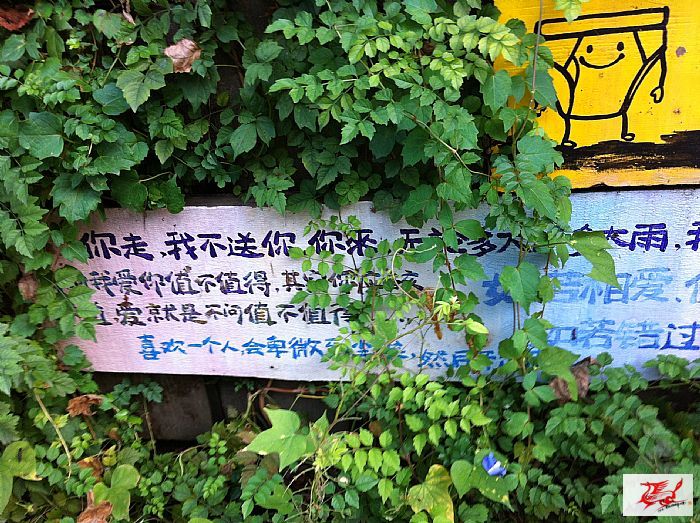 你走,我不送你,你来,无论多大雨,我
我爱你值不值得,其实你
爱就是不问值不值得
喜欢一个人,会卑微到尘,然后
如若相爱,
如若错过